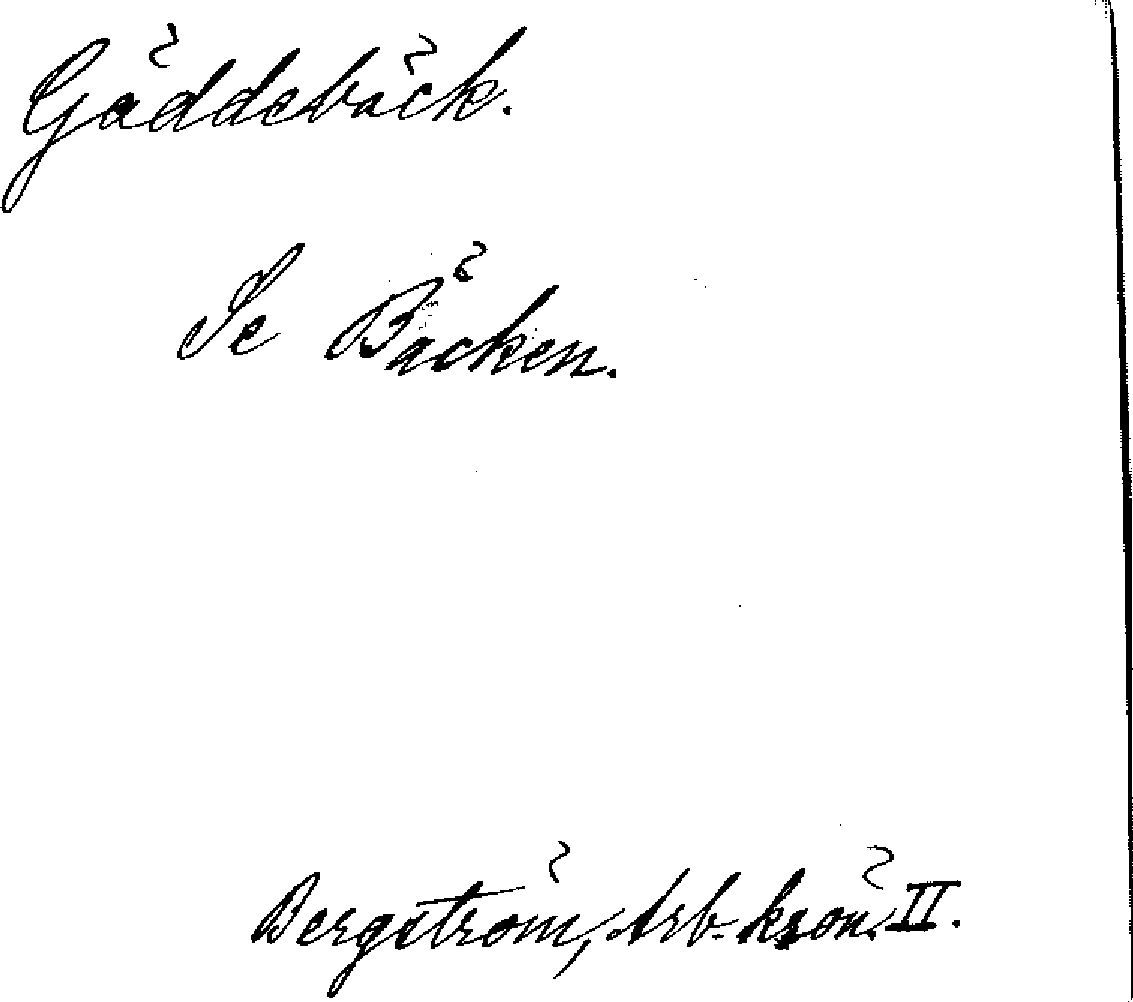 Gäddebäck.
Se Bäcken.
Bergström, Arb. krön. II.